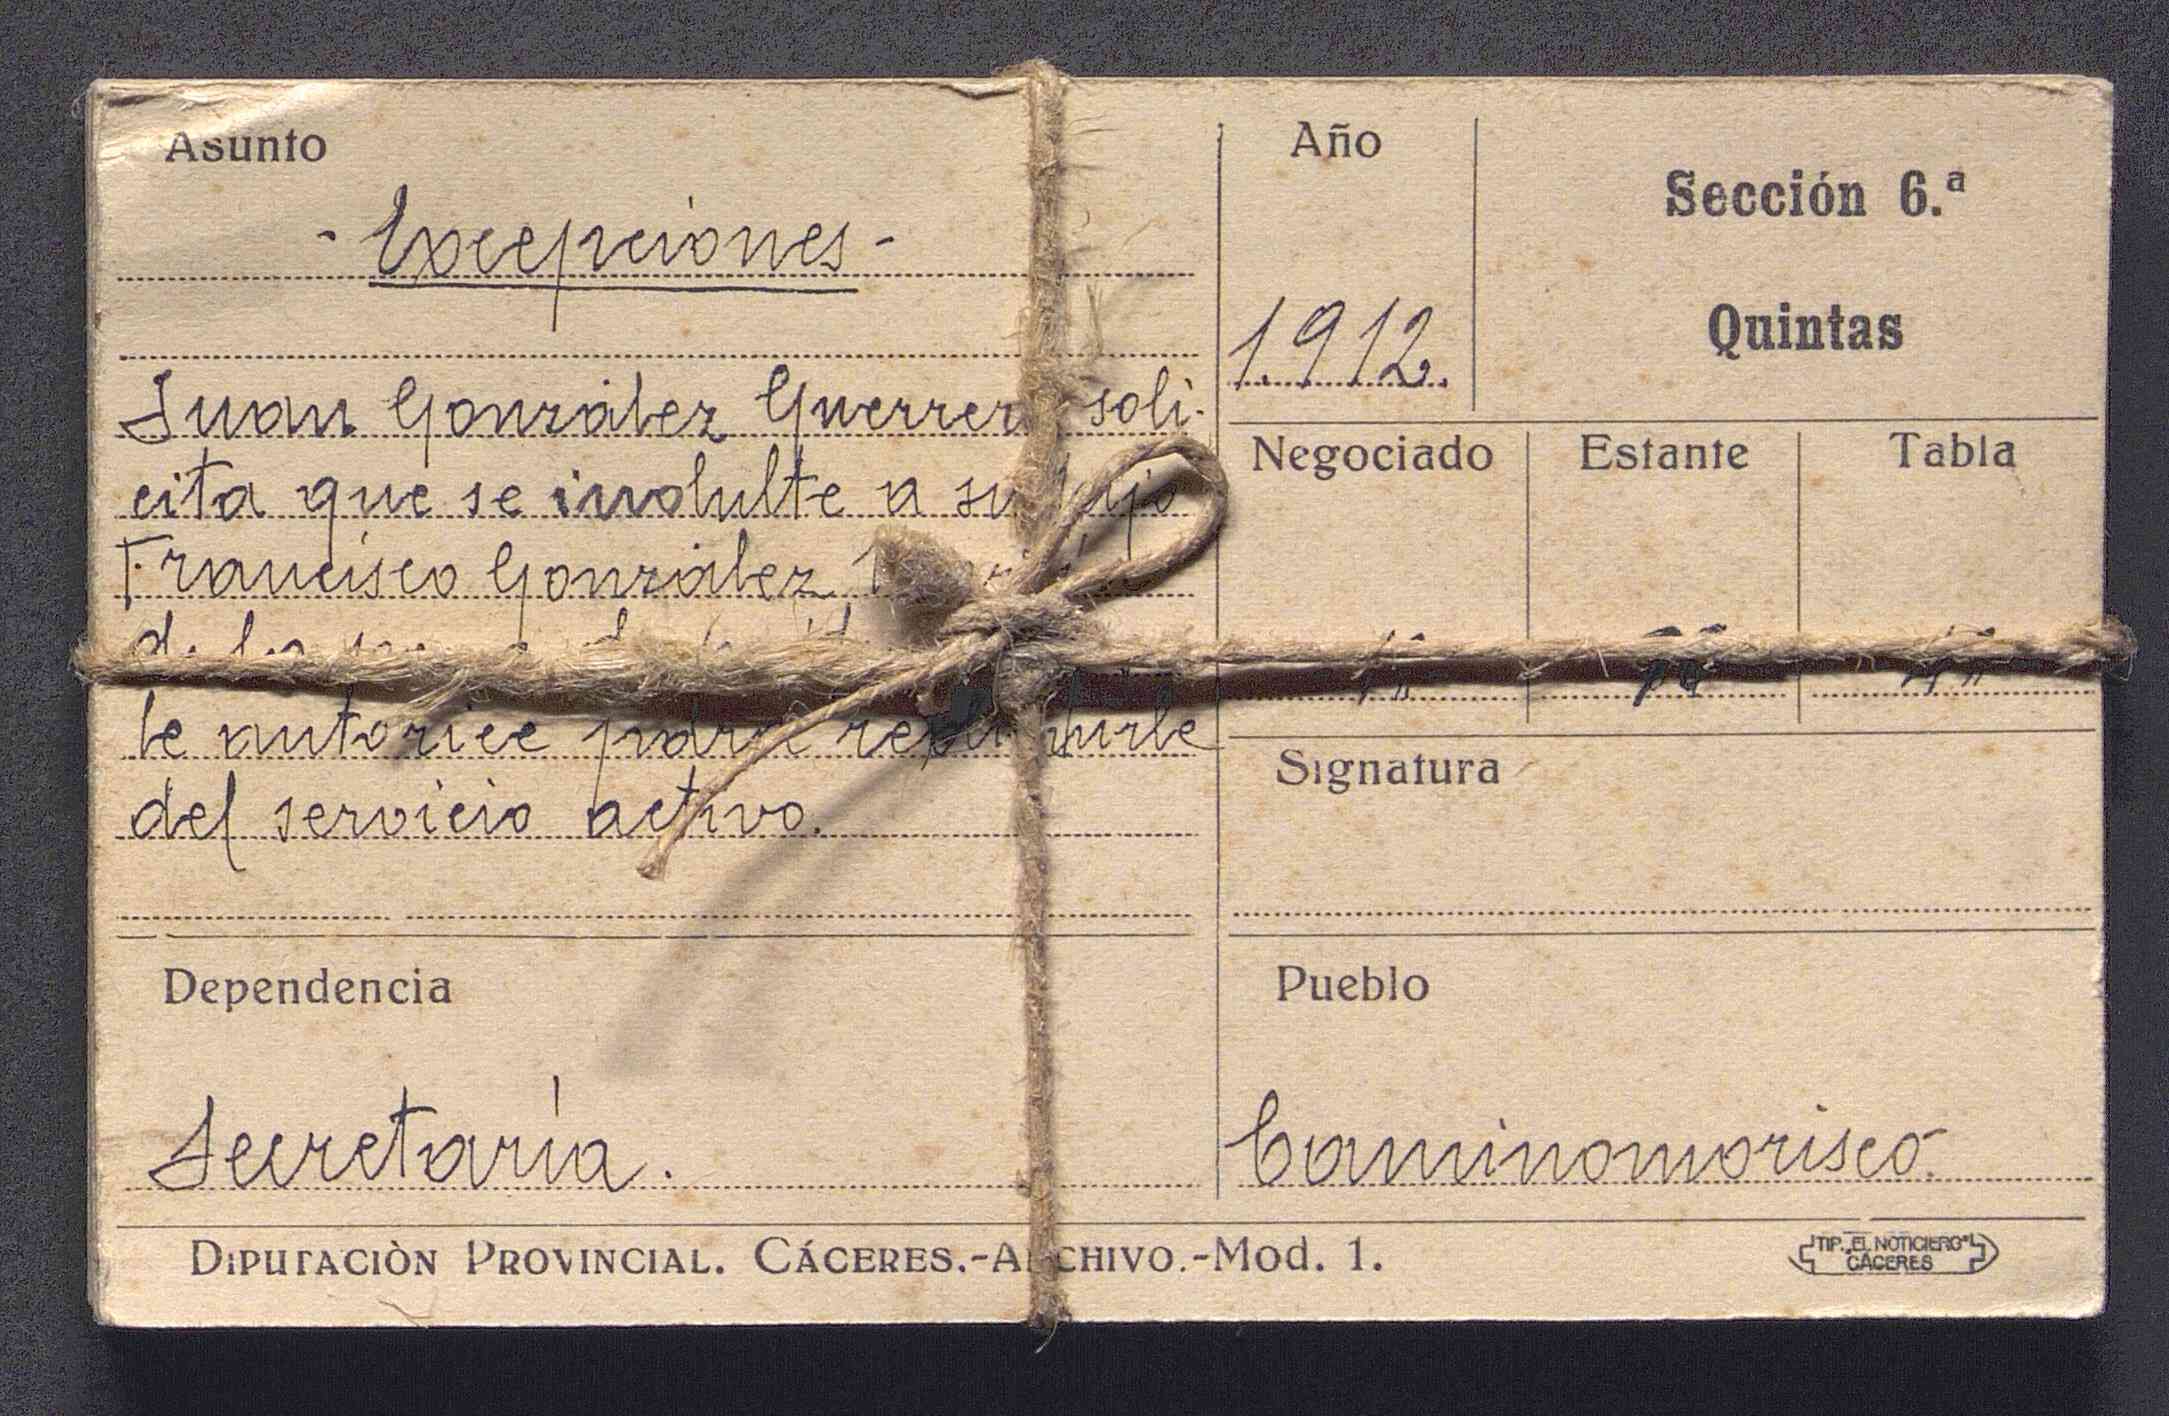 Asunto
- Excepciones -
Juan González Guerrero soli-
cita que se indulte a su hijo
Francisco González
de la
le autorice para
del servicio activo.
Dependencia
Secretaría.
Año
1.912.
Sección 6.ª
Quintas
Negociado Estante Tabla
Signatura
Pueblo
Caminomorisco.
DIPUTACIÒN PROVINCIAL. CÁCERES.-ARCHIVO.-Mod. 1.
TIP. „EL NOTICIERO"
CÁCERES